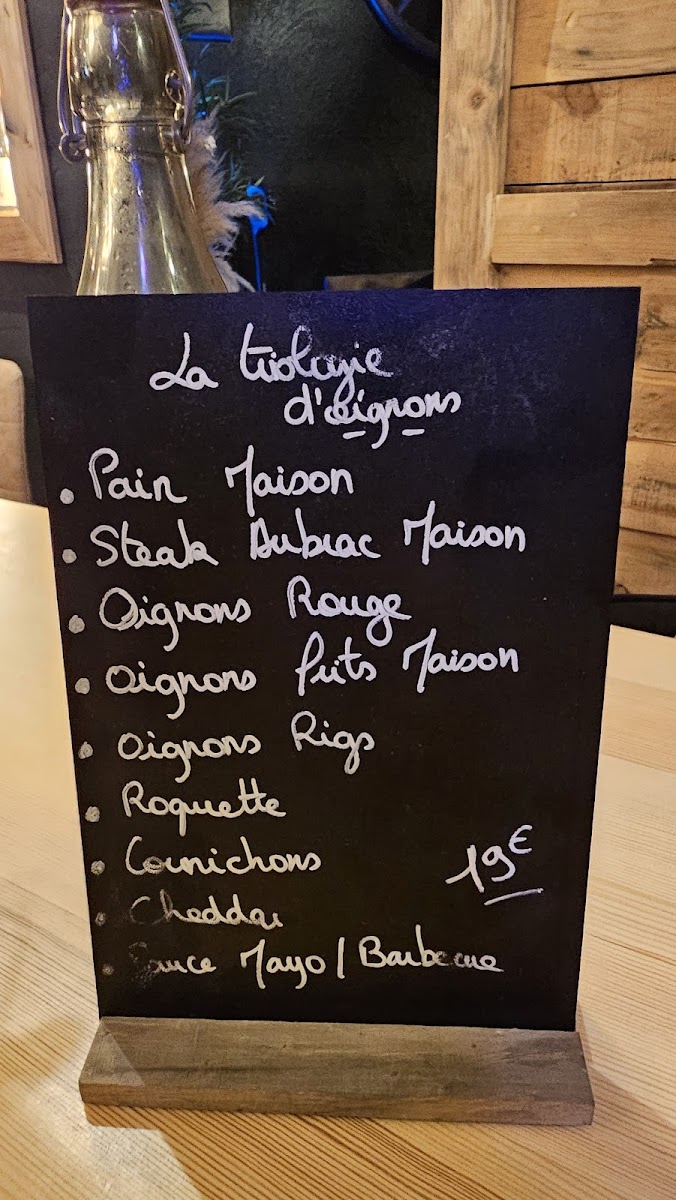 La triologie
d'oignons
• Pain Maison
• Steak Aubrac Maison
• Oignons Rouge
• oignons frits Maison
• oignons Rigs
• Roquette
• Cornichons
19€
• Cheddar
• Sauce Mayo / Barbecue